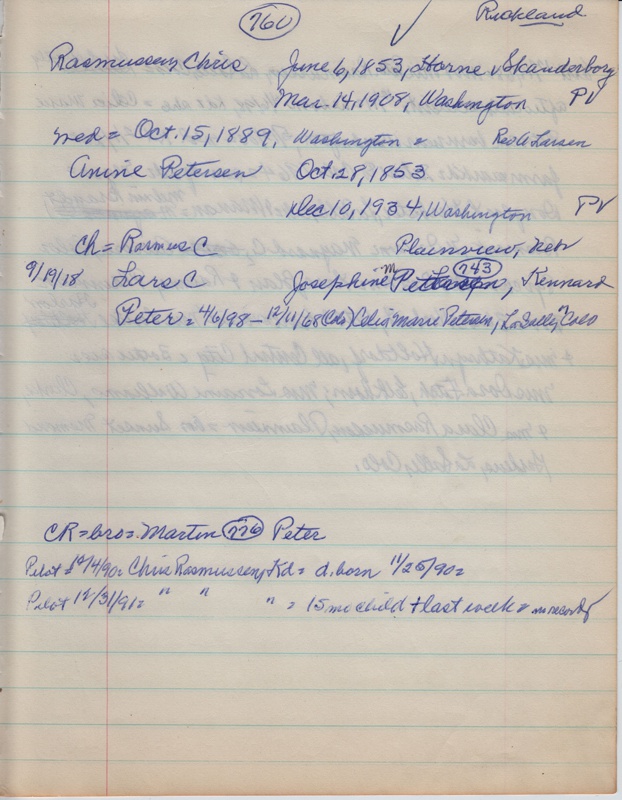 760 Richland
Rasmussen, Chris June 6, 1853, Horne Skanderborg
Mar. 14, 1908, Washington PV
med = Oct. 15, 1889, Washington = Rev A Larsen
Anine Petersen Oct. 28, 1853
Dec 10, 1934, Washington PV
Ch = Rasmus C Plainview, Neb
9/19/18 Lars C Josephine M Petersen 743, Kennard
Peter = 4/6/98 – 12/11/68 (Colo) Celia Marie Petersen, LaSalle, Colo
CR = bro = Martin 776 Peter
Pilot = 12/4/90 = Chris Rasmussen, Kd = d. born 11/25/90 =
Pilot 12/31/91 = " " " = 15 mo child + last week = no record